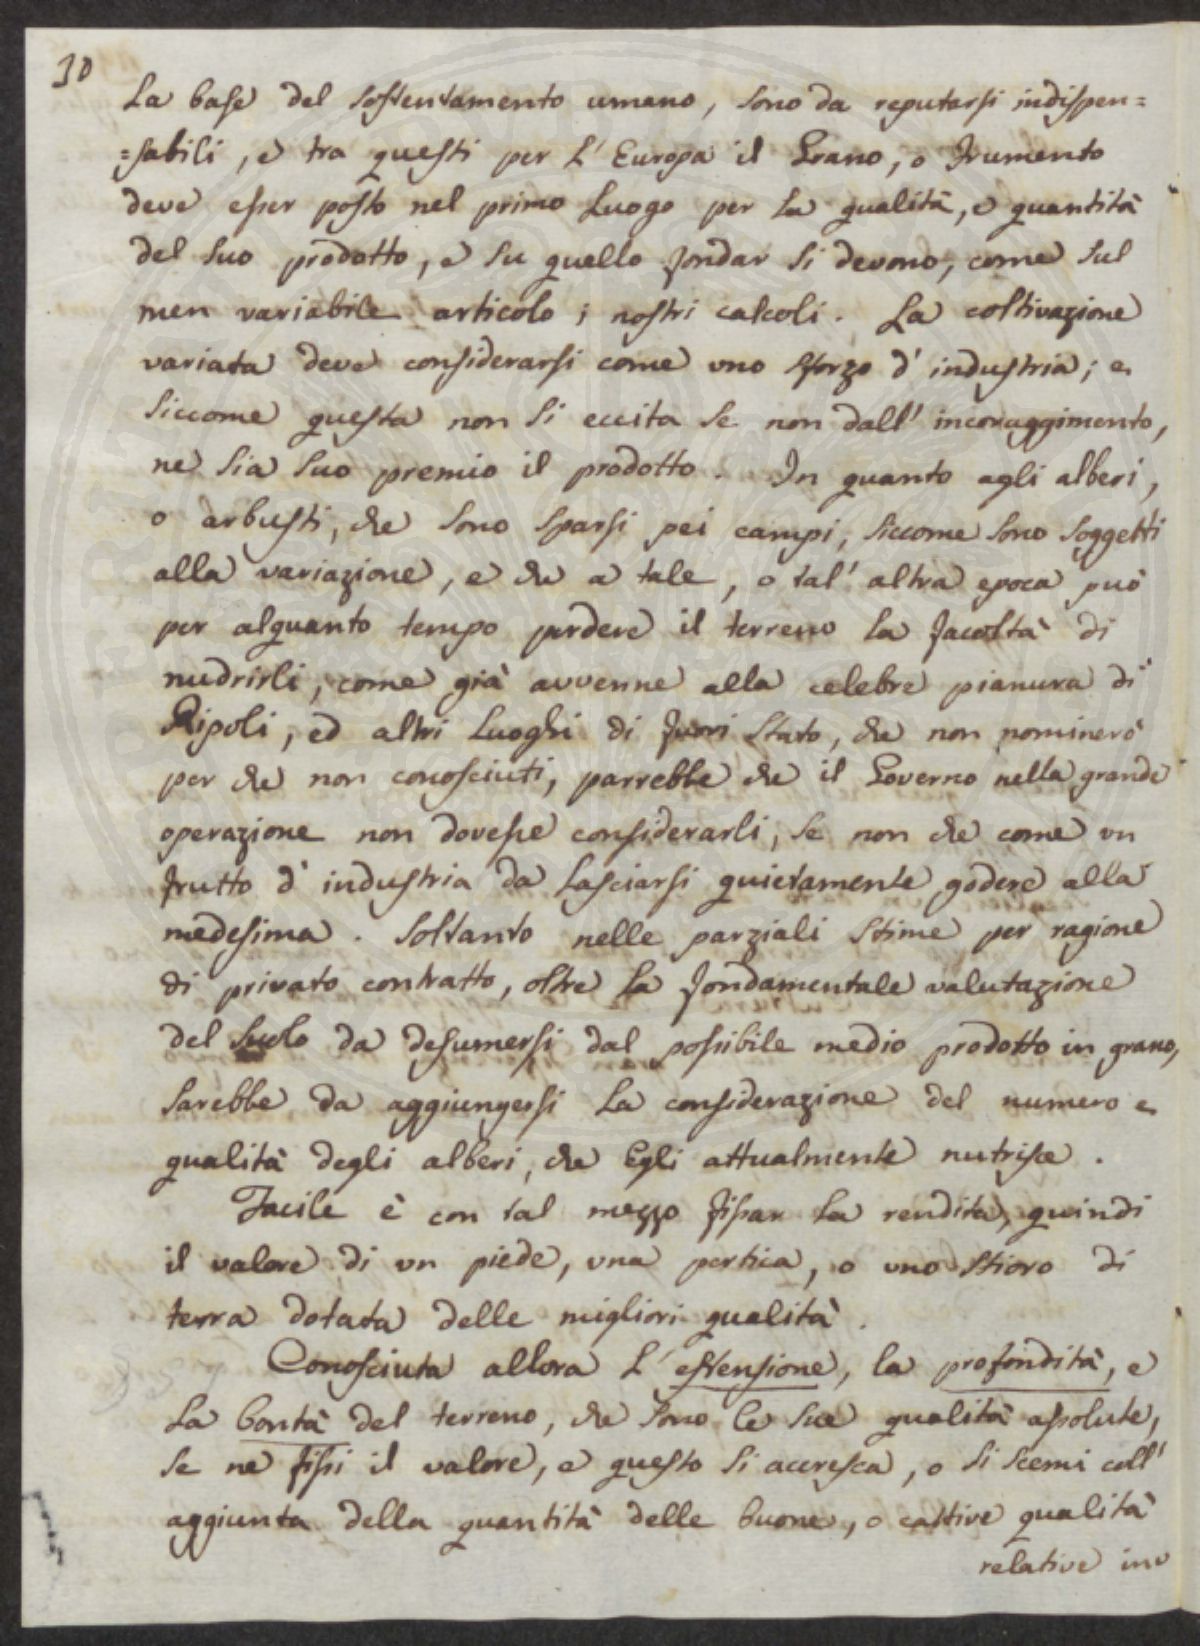 30
La base del sostentamento umano, sono da reputarsi indispen=
=sabili, e tra questi per l'Europa il Grano, o Frumento
deve esser posto nel primo Luogo per la qualità, e quantità
del suo prodotto, e su quello fondar si devono, come sul
men variabile articolo i nostri calcoli. La coltivazione
variata deve considerarsi come uno sforzo d'industria; e
siccome questa non si eccita se non dall'incoraggimento,
ne sia suo premio il prodotto. In quanto agli alberi,
o arbusti, che sono sparsi pei campi, siccome sono soggetti
alla variazione, e che a tale, o tal'altra epoca può
per alquanto tempo perdere il terreno la facoltà di
nudrirli, come già avvenne alla celebre pianura di
Ripoli, ed altri Luoghi di fuori Stato, che non nominerò
per che non conosciuti, parrebbe che il Governo nella grande
operazione non dovesse considerarli, se non che come un
frutto d'industria da lasciarsi quietamente godere alla
medesima. Soltanto nelle parziali stime per ragione
di privato contratto, oltre la fondamentale valutazione
del suolo da desumersi dal possibile medio prodotto in grano,
sarebbe da aggiungersi la considerazione del numero e
qualità degli alberi, che Egli attualmente nutrisce.
Facile è con tal mezzo fissar la rendita, quindi
il valore di un piede, una pertica, o uno stioro di
terra dotata delle migliori qualità.
Conosciuta allora l'estensione, la profondità, e
la bontà del terreno, che sono le sue qualità assolute,
se ne fissi il valore, e questo si accresca, o si scemi coll'
aggiunta della quantità delle buone, o cattive qualità
relative